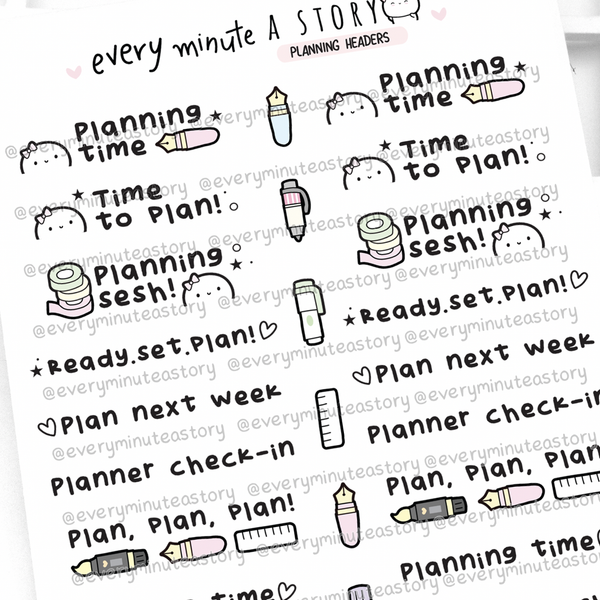 every minute A STORY
PLANNING HEADERS
Planning
time
Planning
time
@everyminuteastory @everyminuteastory
Time
to Plan!
Time
to Plan!
@everyminuteastory @everyminuteastory
Planning
sesh!
Planning
sesh!
@everyminuteastory @everyminuteastory
@everyminuteastory @everyminuteastory
Ready.set.Plan!
Ready.set.Plan!
@everyminuteastory @everyminuteastory
Plan next week
Plan next week
@everyminuteastory @everyminuteastory
Planner check-in
Planner check-in
@everyminuteastory @everyminuteastory
Plan, Plan, Plan!
Plan, Plan, Plan
@everyminuteastory @everyminuteastory
Planning time
time